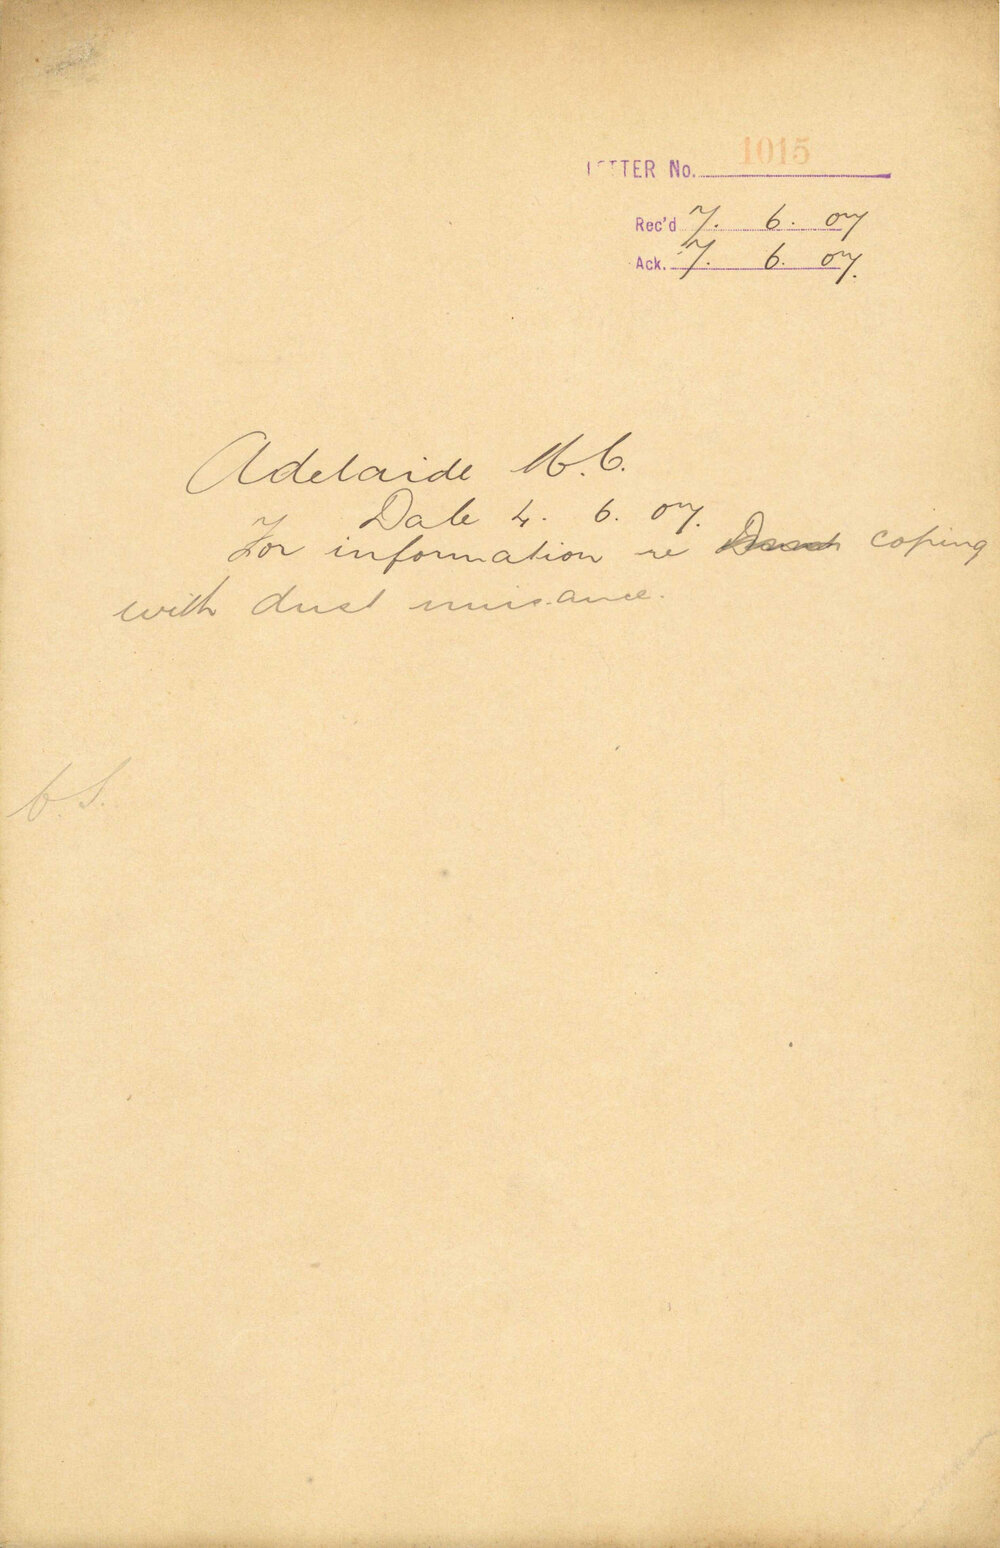 LETTER No. 1015
Rec'd 7. 6. 07
Ack. 7. 6. 07.
Adelaide M.C.
Date 4. 6. 07.
For information re coping
with dust nuisance.